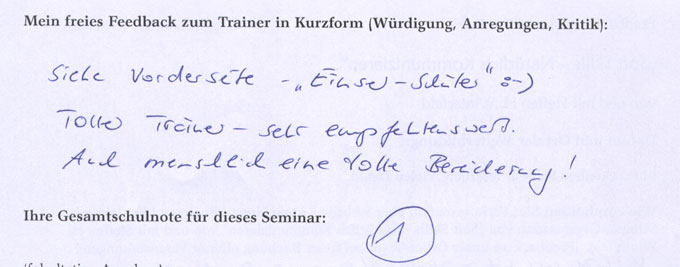 Mein freies Feedback zum Trainer in Kurzform (Würdigung, Anregungen, Kritik):
Siehe Vorderseite - „Einser-Schüler" :-)
Toller Trainer – sehr empfehlenswert.
Auch menschlich eine tolle Bereicherung!
Ihre Gesamtschulnote für dieses Seminar: 1